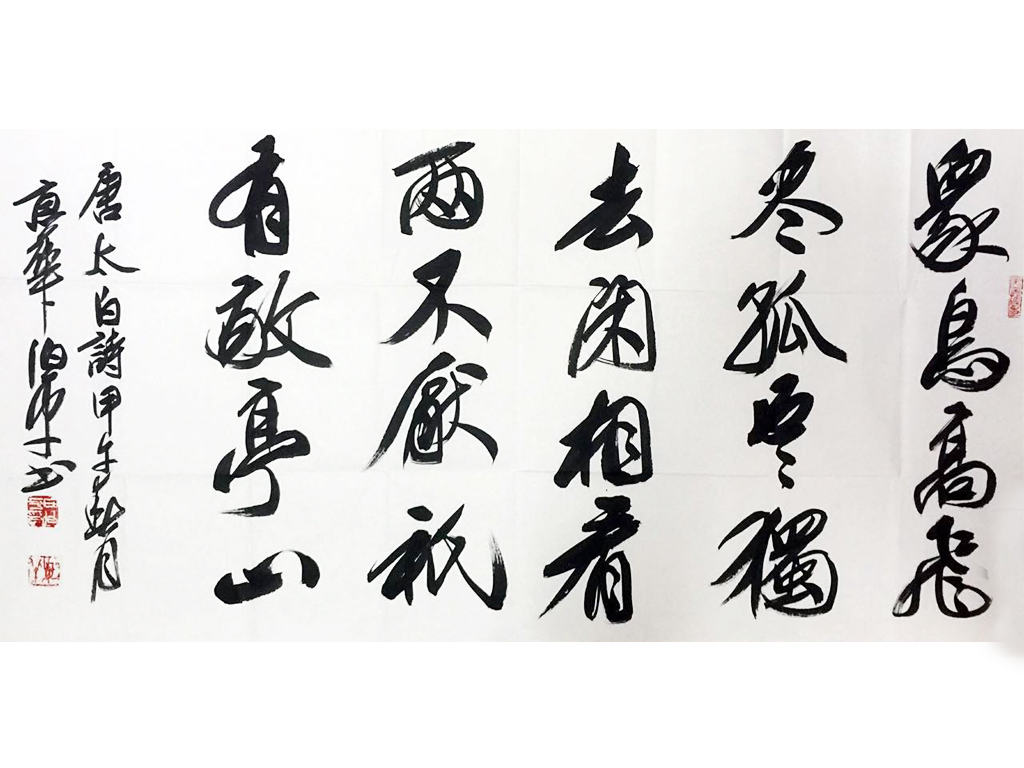 眾鳥高飛
尽孤雲獨
去閑相看
兩不厭祇
有敬亭山
唐太白詩甲午新月
京華 書